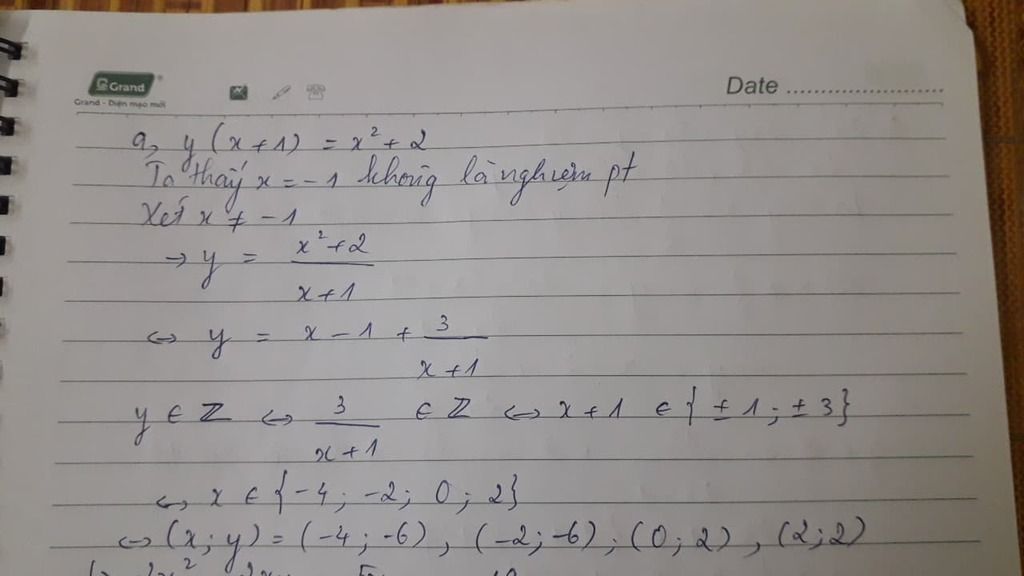 Grand
Grand - Diện mạo mới
Date
a, y(x+1) = x²+2
Ta thấy x = -1 không là nghiệm pt
Xét x ≠ -1
→ y = (x²+2)/(x+1)
⇔ y = x - 1 + 3/(x+1)
y ∈ ℤ ⇔ 3/(x+1) ∈ ℤ ⇔ x+1 ∈ {±1; ±3}
⇔ x ∈ {-4; -2; 0; 2}
⇔ (x; y) = (-4; -6), (-2; -6); (0; 2), (2; 2)